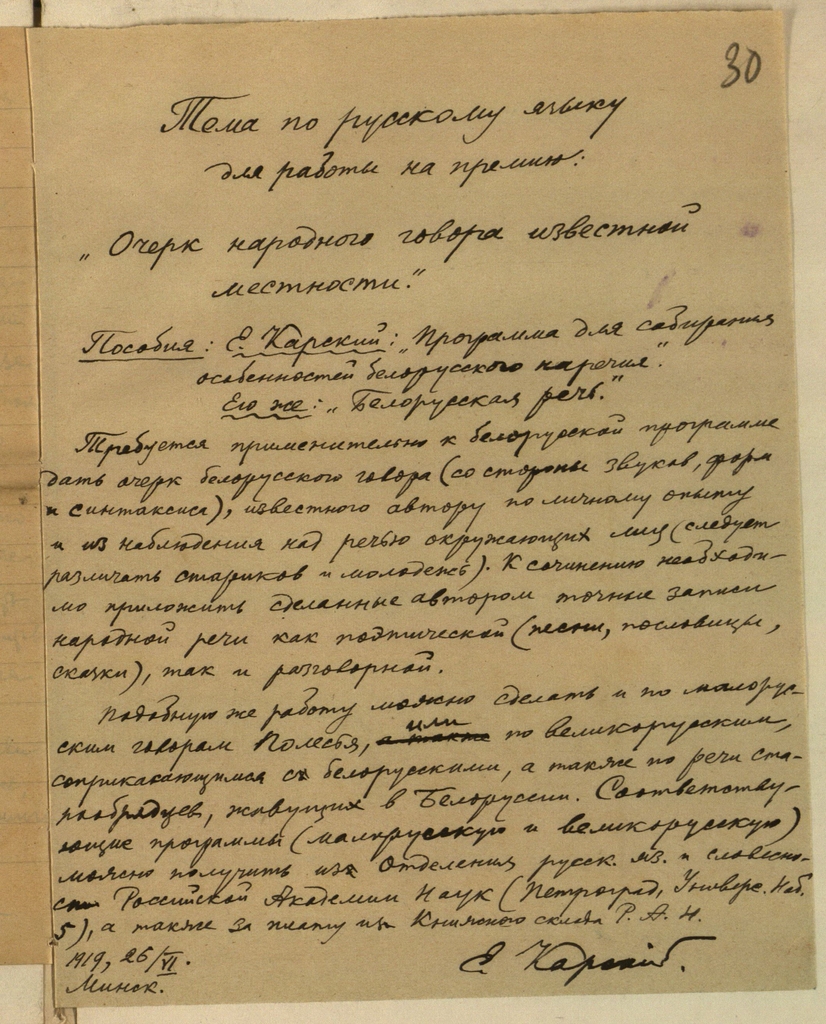 30
Тема по русскому языку
для работы на премию:
„Очерк народного говора известной
местности."
Пособия: Е. Карский: „Программа для собирания
особенностей белорусского наречия".
Его же: „Белорусская речь."
Требуется применительно к белорусской программе
дать очерк белорусского говора (со стороны звуков, форм
и синтаксиса), известного автору по личному опыту
и из наблюдения над речью окружающих лиц (следует
различать стариков и молодежь). К сочинению необходи-
мо приложить сделанные автором точные записи
народной речи как поэтической (песни, пословицы,
сказки), так и разговорной.
Подобную же работу можно сделать и по малорус-
ским говорам Полесья, или по великорусским,
соприкасающимся с белорусскими, а также по речи ста-
рообрядцев, живущих в Белоруссии. Соответству-
ющие программы (малорусскую и великорусскую)
можно получить из Отделения русск. яз. и словесно-
сти Российской Академии Наук (Петроград, Универс. Наб.
5), а также за плату из Книжного склада Р. А. Н.
1919, 26/VI.
Минск.
Е. Карский.